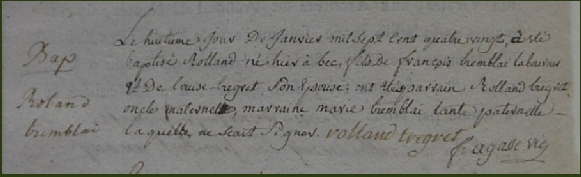 Bap
Roland
tremblai
Le huitieme jour De Janvier mil sept cent quatre vingt, à été
baptisé Rolland né hier à bec, fils de françois tremblai laboureur
et De louise tregret, son Epouse; ont étés parrain Rolland tregret
oncle maternelle, marraine marie tremblai tante paternelle
laquelle ne scait signer. rolland tregret